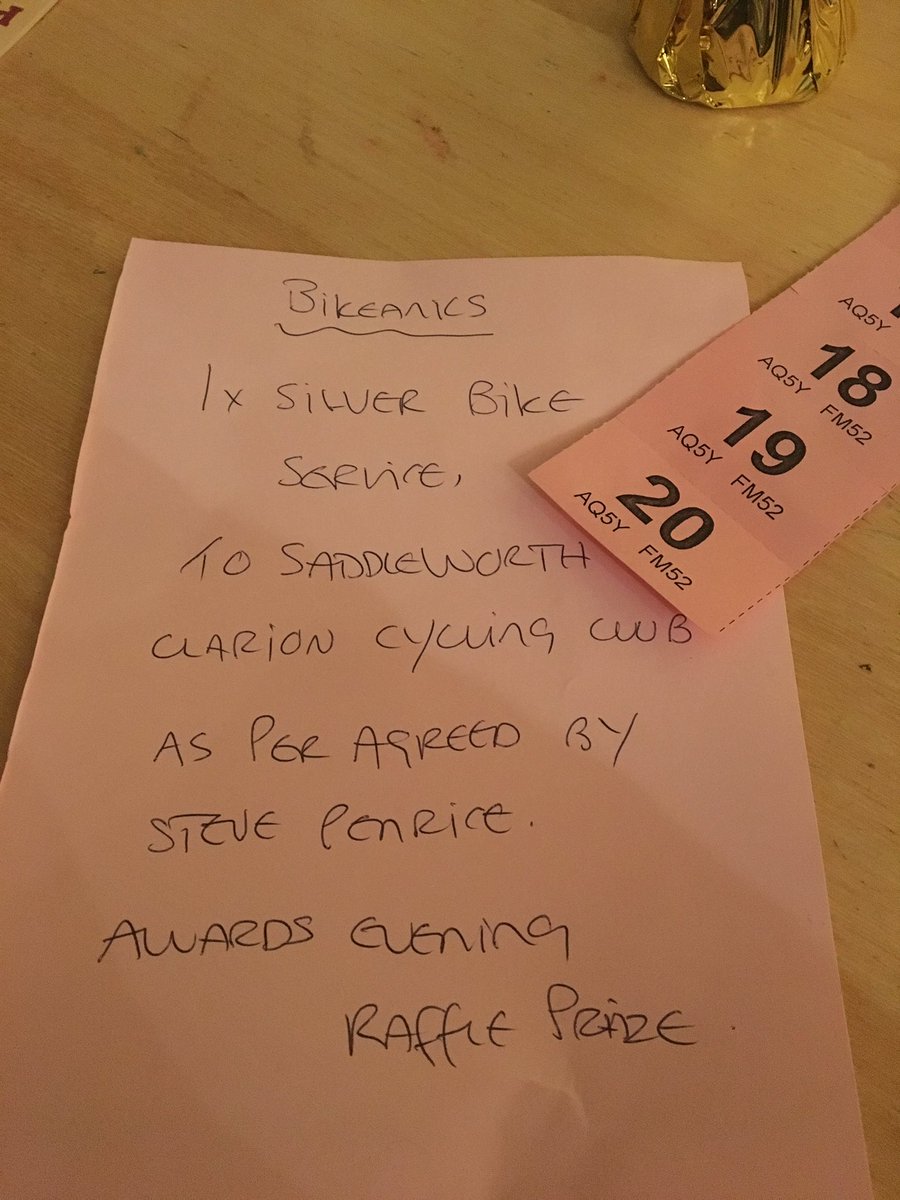 BIKEANICS
1x SILVER BIKE
SERVICE,
TO SADDLEWORTH
CLARION CYCLING CLUB
AS PER AGREED BY
STEVE PENRICE.
AWARDS EVENING
RAFFLE PRIZE
AQ5Y
18
AQ5Y FM52
19
AQ5Y FM52
20
AQ5Y FM52